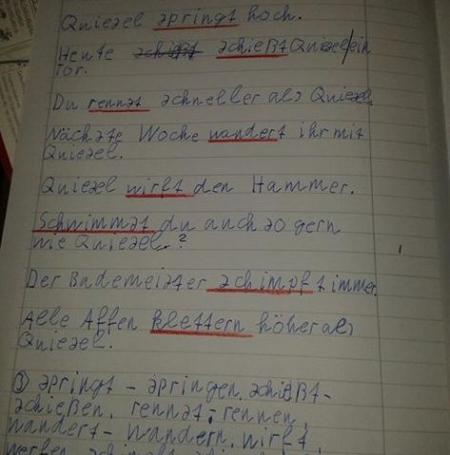 Quiesel springt hoch.
Heute schießt schießt Quiesel ein
Tor.
Du rennst schneller als Quiesel.
Nächste Woche wandert ihr mit
Quiesel.
Quiesel wirft den Hammer.
Schwimmst du auch so gern
wie Quiesel?
Der Bademeister schimpft immer.
Alle Affen klettern höher als
Quiesel.
3) springt - springen, schießt -
schießen, rennst - rennen,
wandert - wandern, wirft,